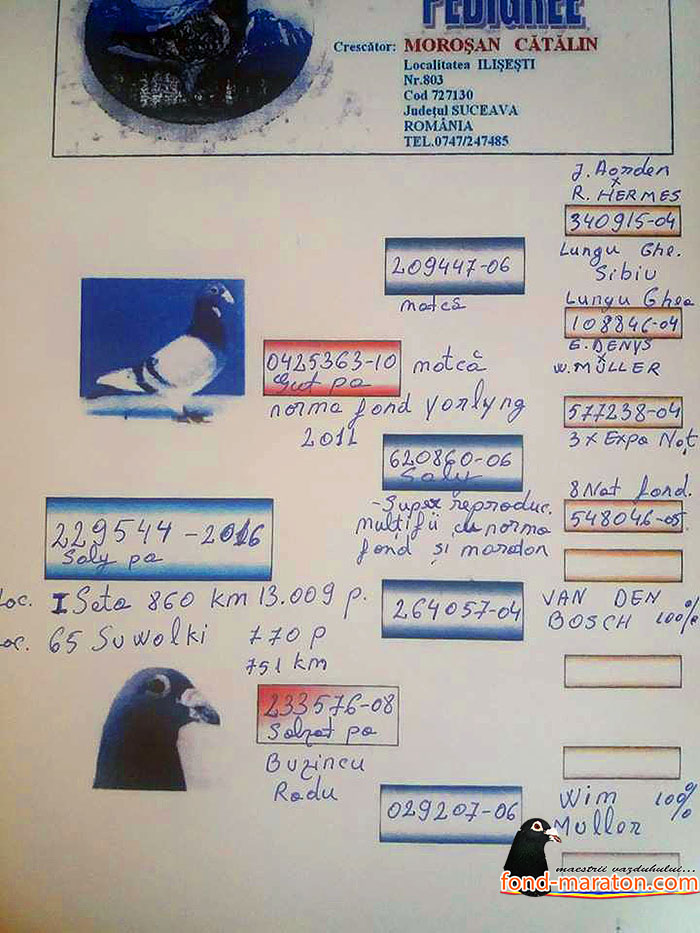 PEDIGREE
Crescător: MOROŞAN CĂTĂLIN
Localitatea ILIŞEŞTI
Nr.803
Cod 727130
Judeţul SUCEAVA
ROMÂNIA
TEL.0747/247485
J. Aarden
x
R. HERMES
340915-04
Lungu Ghe.
Sibiu
209447-06
motcă
Lungu Ghea
108846-04
G. DENYS
x
W. MÜLLER
0425363-10 motcă
Gut pa
norma fond yorlyng
2011
577238-04
3 x Expo Naţ
620860-06
Saly
-Super reproduc.
mulţi fii cu norma
fond şi maraton
8 Nat fond
548046-05
229544-2016
Saly pa
Loc. I Seta 860 km 13.009 p.
Loc. 65 Suwolki 770 p
751 km
264057-04
VAN DEN
BOSCH 100%
233576-08
Salzat pa
Buzincu
Radu
029207-06
Wim 100%
Muller
maestrii vazduhului...
fond-maraton.com